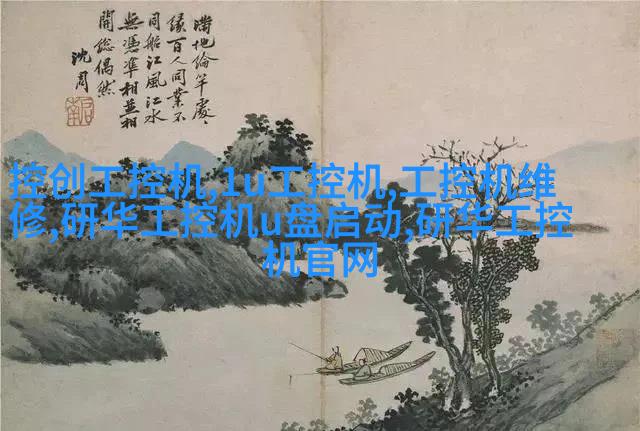 滿地綸竿處〻
緣百人同業不
同船江風江水
無憑準相並相
開總偶然
沈周
控创工控机,1u工控机,工控机维
修,研华工控机u盘启动,研华工控
机官网